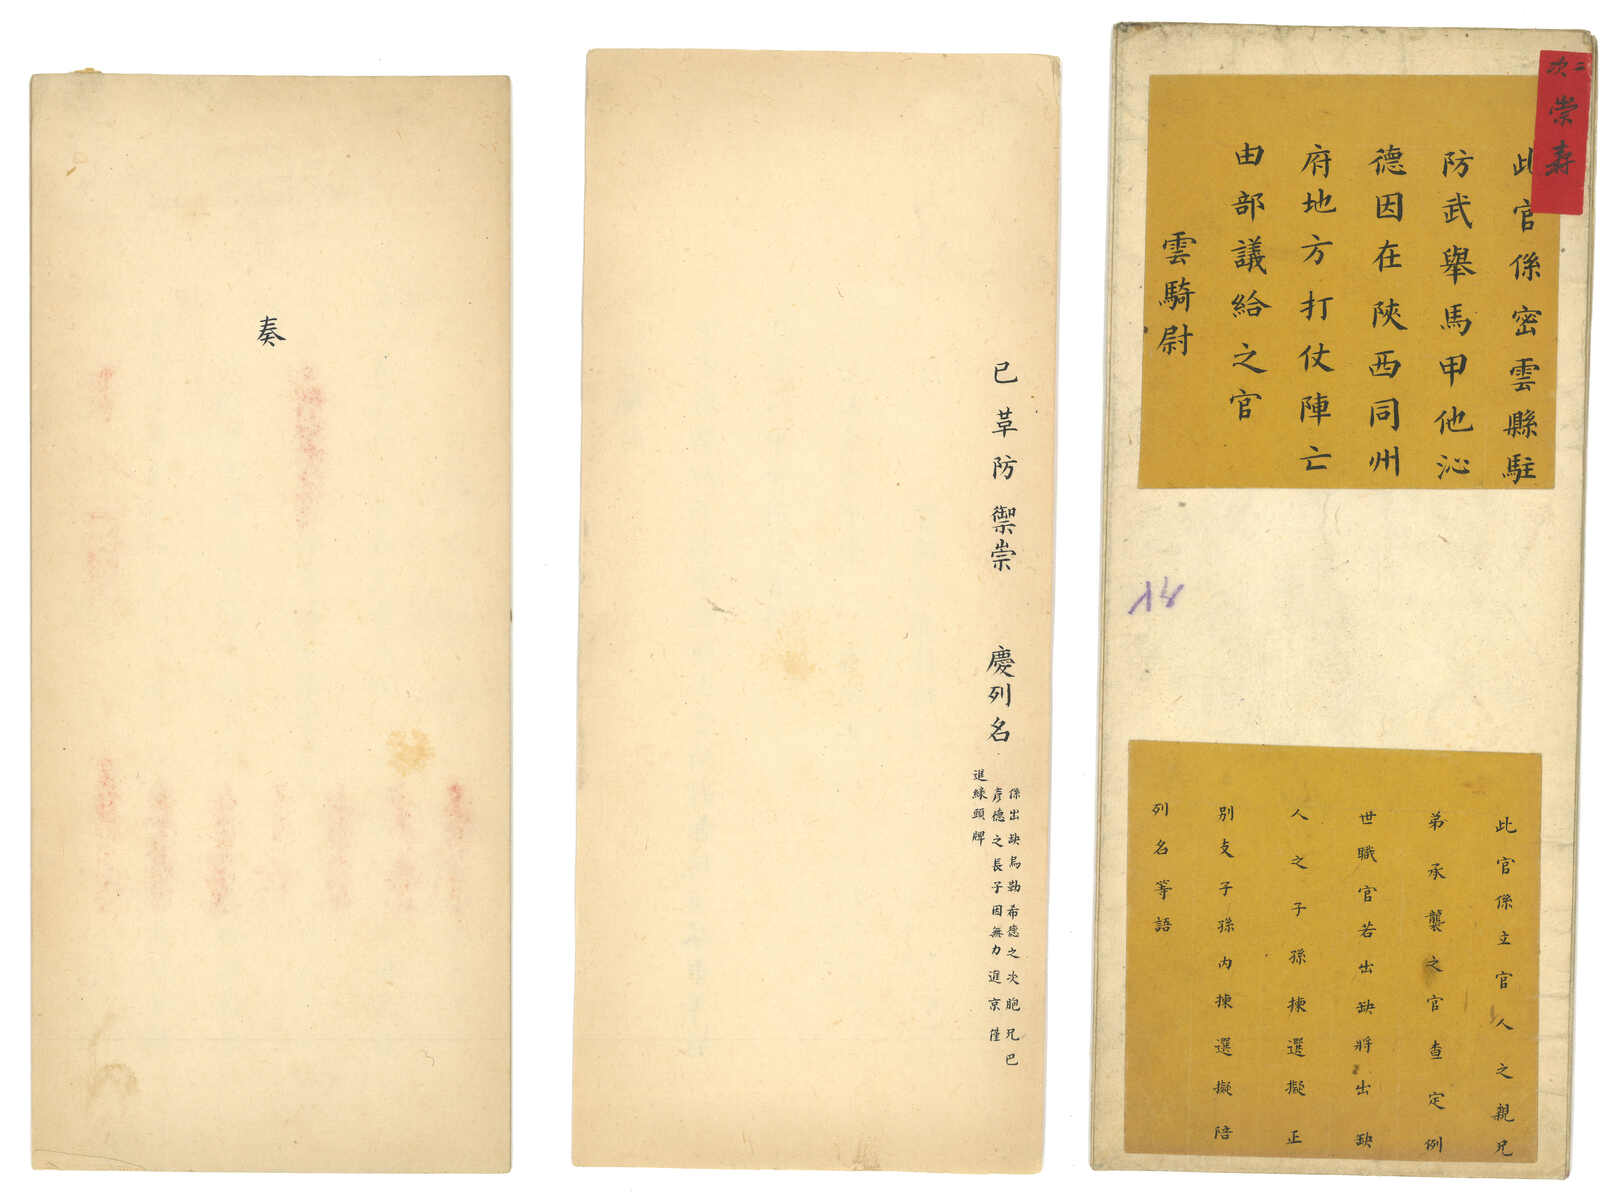 奏
已革防禦崇 慶列名
係出缺烏勒希德之次胞兄巴
彥德之長子因無力進京僅
進綠頭牌
二次
崇壽
此官係密雲縣駐
防武舉馬甲他沁
德因在陝西同州
府地方打仗陣亡
由部議給之官
雲騎尉
此官係立官人之親兄
弟承襲之官查定例
世職官若出缺將出缺
人之子孫揀選擬正
別支子孫內揀選擬陪
列名等語